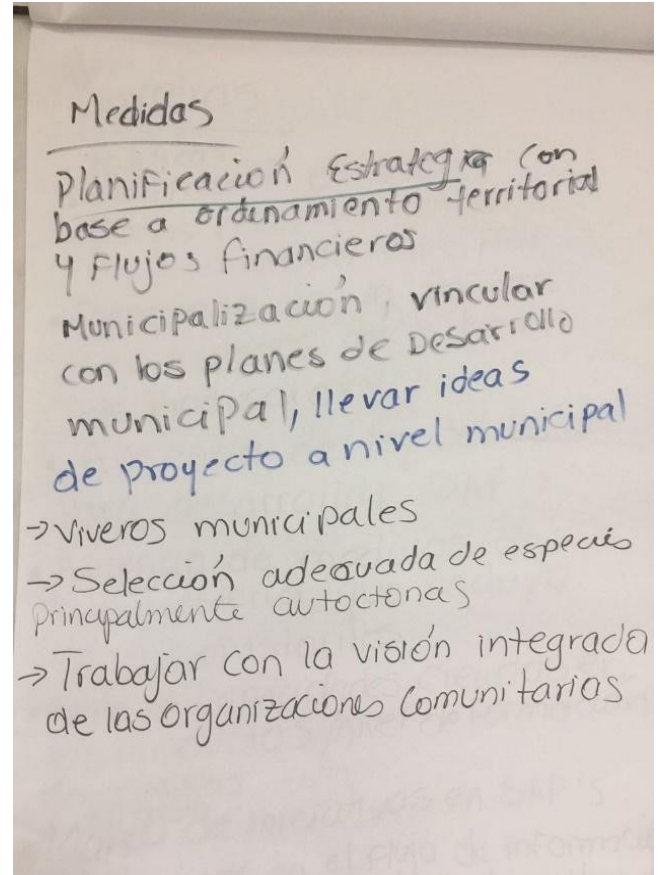 Medidas
Planificación Estrategia con
base a ordenamiento territorial
y Flujos financieros
Municipalización, vincular
con los planes de Desarrollo
municipal, llevar ideas
de proyecto a nivel municipal
→ Viveros municipales
→ Selección adecuada de especies
principalmente autoctonas
→ Trabajar con la visión integrada
de las organizaciones Comunitarias